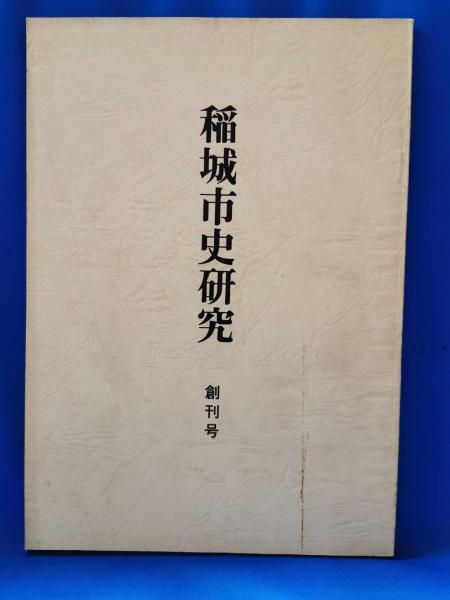 稲城市史研究
創刊号